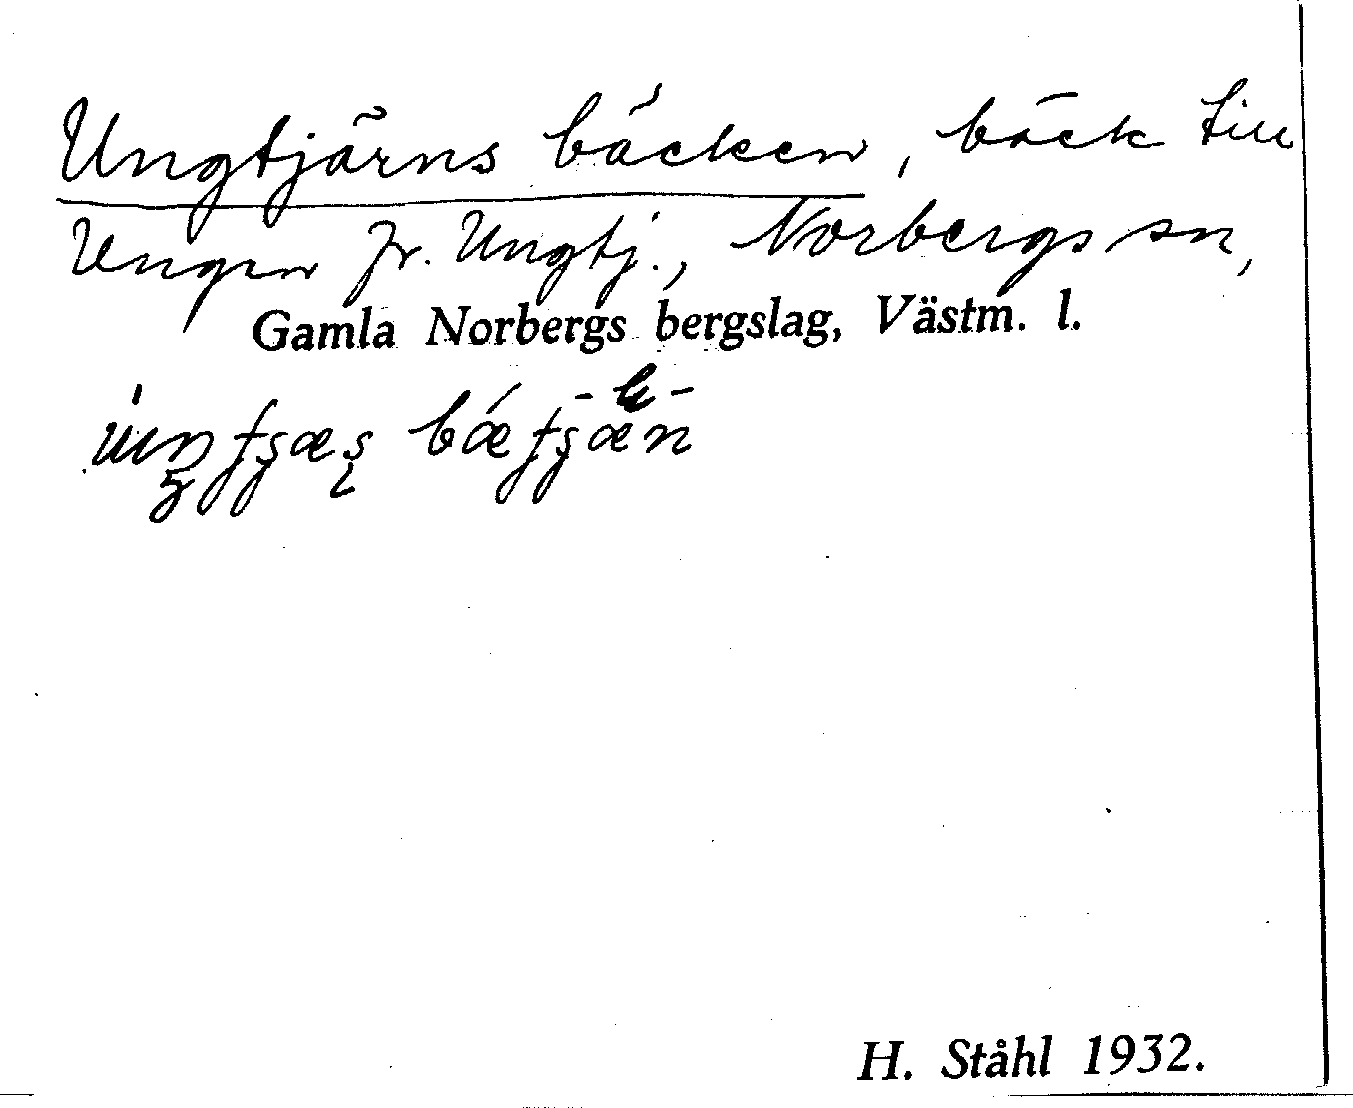 Ungtjärns bäcken, bäck till
Ungen fr. Ungtj., Norbergs sn,
Gamla Norbergs bergslag, Västm. l.
H. Ståhl 1932.